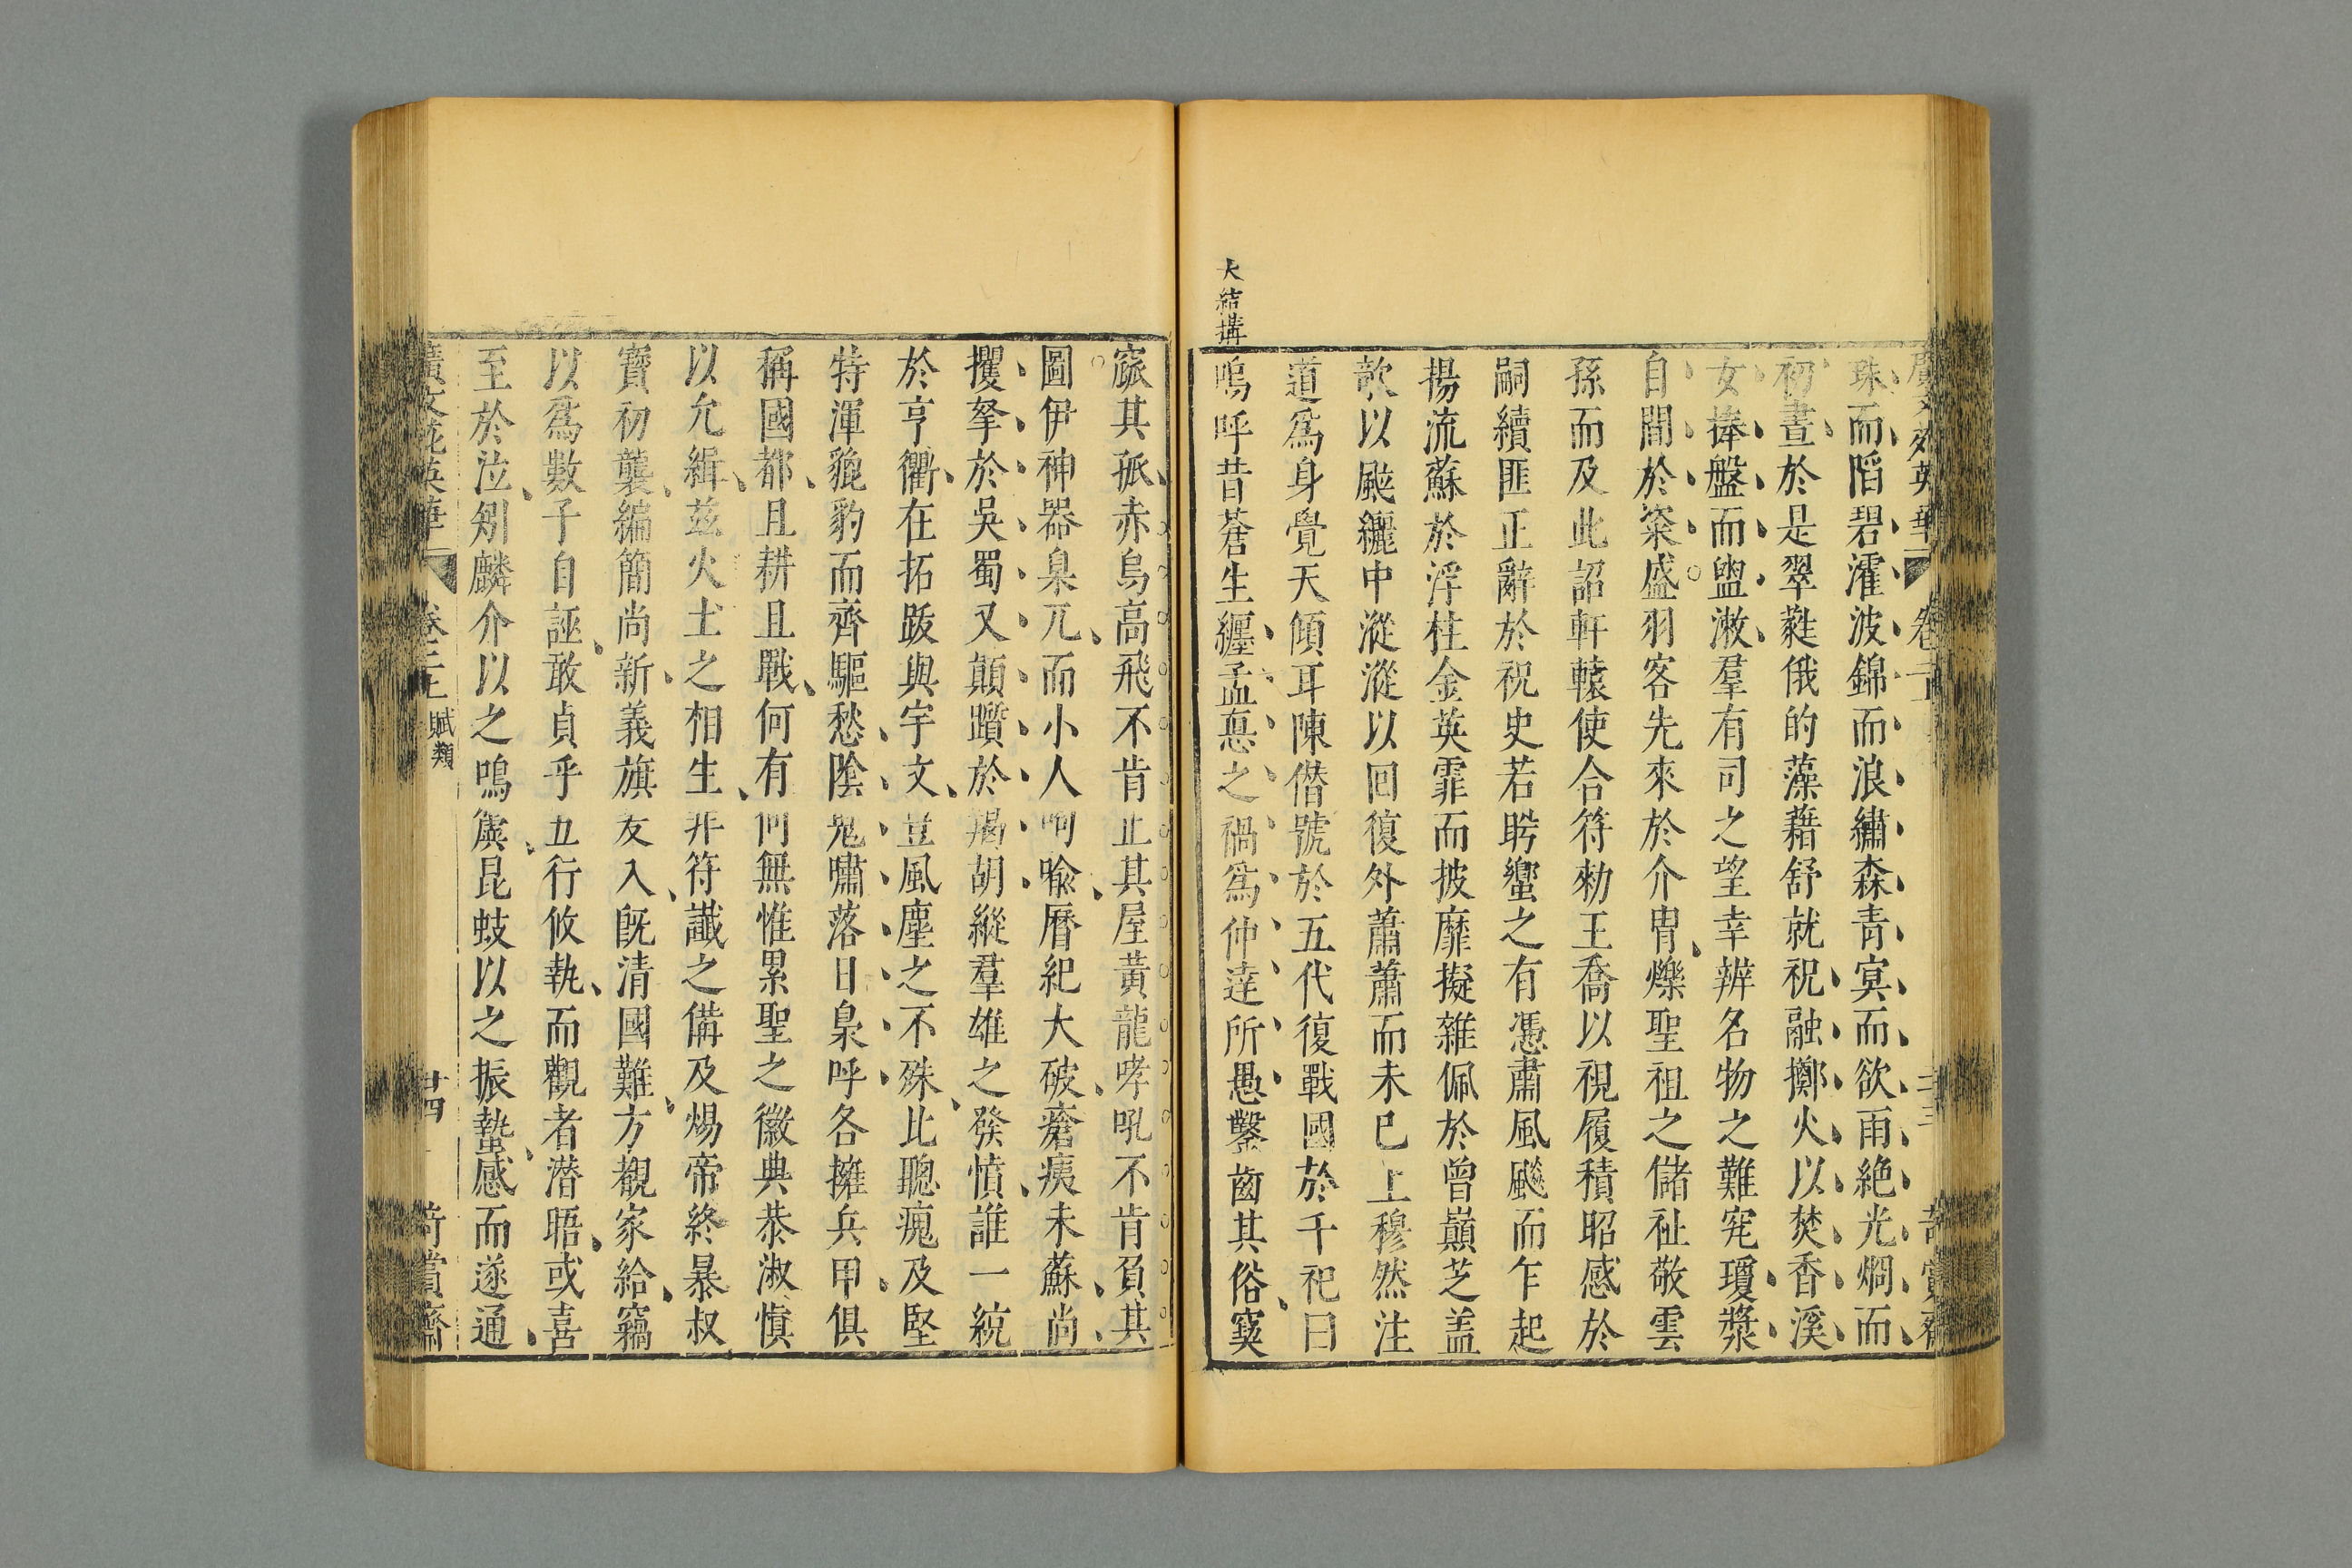 珠而陷碧濯波錦而浪繡森青㝠而欲雨絶光烱而
初晝於是翠蕤俄的藻藉舒就祝融擲火以焚香溪
女捧盤而盥漱羣有司之望幸辨名物之難究瓊漿
自間於粢盛羽客先來於介胄爍聖祖之儲祉敬雲
孫而及此詔軒轅使合符勑王喬以視履積昭感於
嗣續匪正辭於祝史若肹蠁之有憑肅風颷而乍起
揚流蘇於浮柱金英霏而披靡擬雜佩於曾巔芝盖
歆以颭纚中漎漎以回復外蕭蕭而未已上穆然注
道爲身覺天傾耳陳僭號於五代復戰國於千祀曰
大結搆
嗚呼昔蒼生纏孟惪之禍爲仲達所愚鑿齒其俗窫
窳其孤赤烏高飛不肯止其屋黃龍哮吼不肯負其
圖伊神器臬兀而小人呴喻曆紀大破瘡痍未蘇尚
攫拏於吳蜀又顛躓於羯胡縱羣雄之發憤誰一統
於亨衢在拓跋與宇文豈風塵之不殊比聰廆及堅
特渾貔豹而齊驅愁陰鬼嘯落日梟呼各擁兵甲俱
稱國都且耕且戰何有何無惟累聖之徽典恭淑愼
以允緝玆火土之相生非符讖之備及煬帝終暴叔
寶初襲編簡尚新義旗爰入旣清國難方覩家給竊
以爲數子自誣敢貞乎五行攸執而觀者潛晤或喜
至於泣矧麟介以之鳴簴昆蚑以之振蟄感而遂通
廣文苑英華 卷三 賦類 廿四 奇賞齋